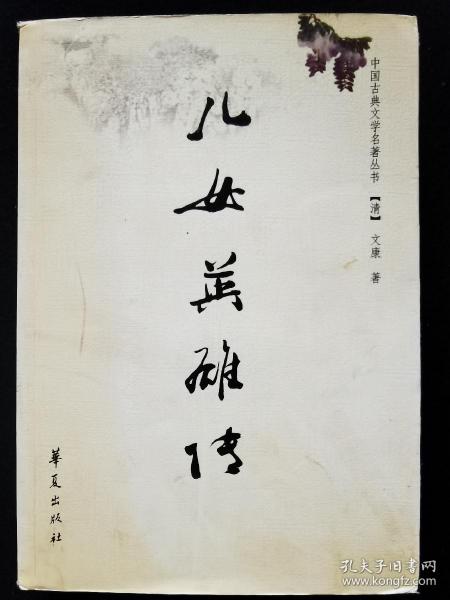 中国古典文学名著丛书 【清】 文康 著
儿女英雄传
華夏出版社
孔夫子旧书网
www.kongfz.com